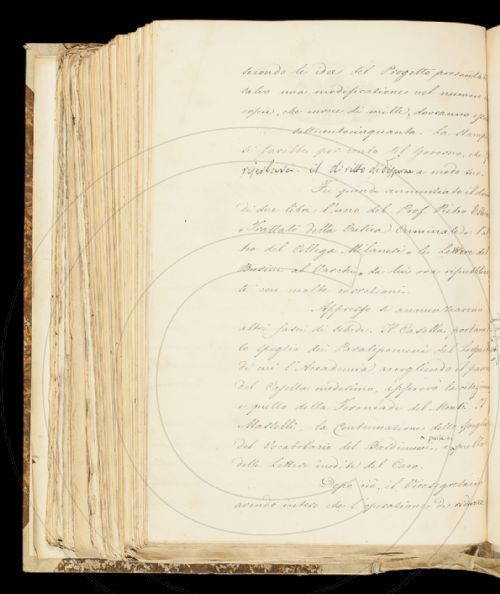 secondo le idee del Progetto presentato
salvo una modificazione nel numero
copie, che invece di mille, dovranno
settecentocinquanta. La stampa
si farebbe per conto del Governo, che
il diritto di disporre a modo suo.
Fu quindi annunziato il dono
di due libri: l'uno del Prof. Pietro Ellero
Trattato della Critica Criminale: l'al
tro del Collega Milanesi, le Lettere del
Busini al Varchi, da lui ora ripubblica
te con molte correzioni.
Appresso si annunziarono
altri fasci di schede. Il Casella, portava
lo spoglio dei Paralipomeni del Leopardi
di cui l'Accademia accogliendo il parere
del Casella medesimo, approvò la citazione
e quello della Feroniade del Monti. Il
Masselli, la Continuazione dello Spoglio
del Vocabolario del Baldinucci, e quello
delle Lettere inedite del Caro.
Dopo ciò, il Vicesegretario
avendo inteso che l'operazione di